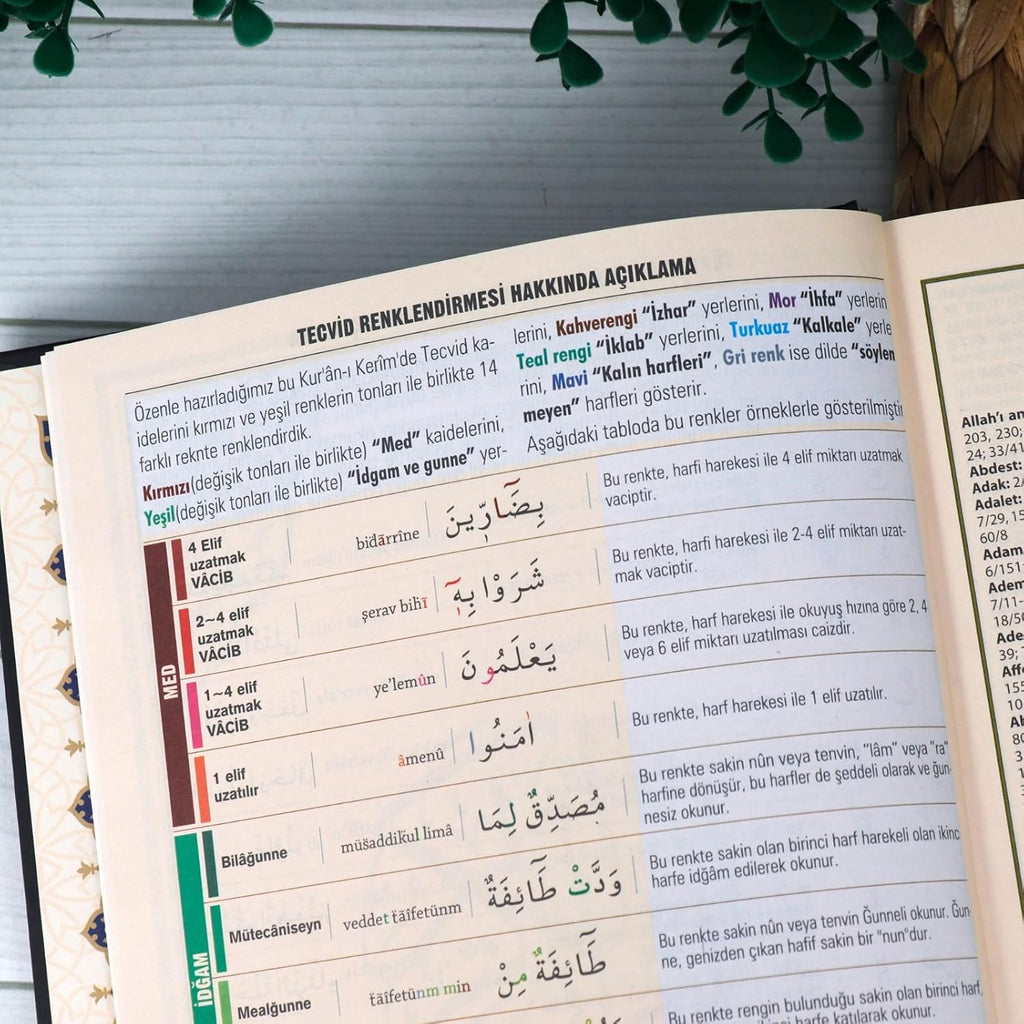 TECVİD RENKLENDİRMESİ HAKKINDA AÇIKLAMA
Özenle hazırladığımız bu Kur'ân-ı Kerîm'de Tecvid ka-
idelerini kırmızı ve yeşil renklerin tonları ile birlikte 14
farklı reknte renklendirdik.
Kırmızı(değişik tonları ile birlikte) "Med" kaidelerini,
Yeşil(değişik tonları ile birlikte) "İdgam ve gunne" yer-
lerini, Kahverengi "İzhar" yerlerini, Mor "İhfa" yerlerin
Teal rengi "İklab" yerlerini, Turkuaz "Kalkale" yerle
rini, Mavi "Kalın harfleri", Gri renk ise dilde "söylen
meyen" harfleri gösterir.
Aşağıdaki tabloda bu renkler örneklerle gösterilmiştir
MED
4 Elif
uzatmak
VÂCİB
bidārrîne
بِضَٓارّ۪ينَ
Bu renkte, harfi harekesi ile 4 elif miktarı uzatmak
vaciptir.
2~4 elif
uzatmak
VÂCİB
şerav bihī
شَرَوْا بِه۪ٓ
Bu renkte, harfi harekesi ile 2-4 elif miktarı uzat-
mak vaciptir.
1~4 elif
uzatmak
VÂCİB
ye'lemûn
يَعْلَمُونَ
Bu renkte, harf harekesi ile okuyuş hızına göre 2, 4
veya 6 elif miktarı uzatılması caizdir.
1 elif
uzatılır
âmenû
اٰمَنُوا
Bu renkte, harf harekesi ile 1 elif uzatılır.
İDĞAM
Bilâğunne
müsaddikul limâ
مُصَدِّقٌ لِمَا
Bu renkte sakin nûn veya tenvin, "lâm" veya "ra"
harfine dönüşür, bu harfler de şeddeli olarak ve ğun-
nesiz okunur.
Mütecâniseyn
veddet tāifetünm
وَدَّتْ طَٓائِفَةٌ
Bu renkte sakin olan birinci harf harekeli olan ikinc
harfe idğâm edilerek okunur.
Mealğunne
tāifetünm min
طَٓائِفَةٌ مِنْ
Bu renkte sakin nûn veya tenvin Ğunneli okunur. Ğun-
ne, genizden çıkan hafif sakin bir "nun"dur.
Bu renkte rengin bulunduğu sakin olan birinci harf,
harfe katılarak okunur.
Allah'ı an
203, 230;
24; 33/41
Abdest:
Adak: 2/
Adalet:
7/29, 15
60/8
Adam
6/151
Adem
7/11-
18/50
Ade
39; 7
Affe
155
10